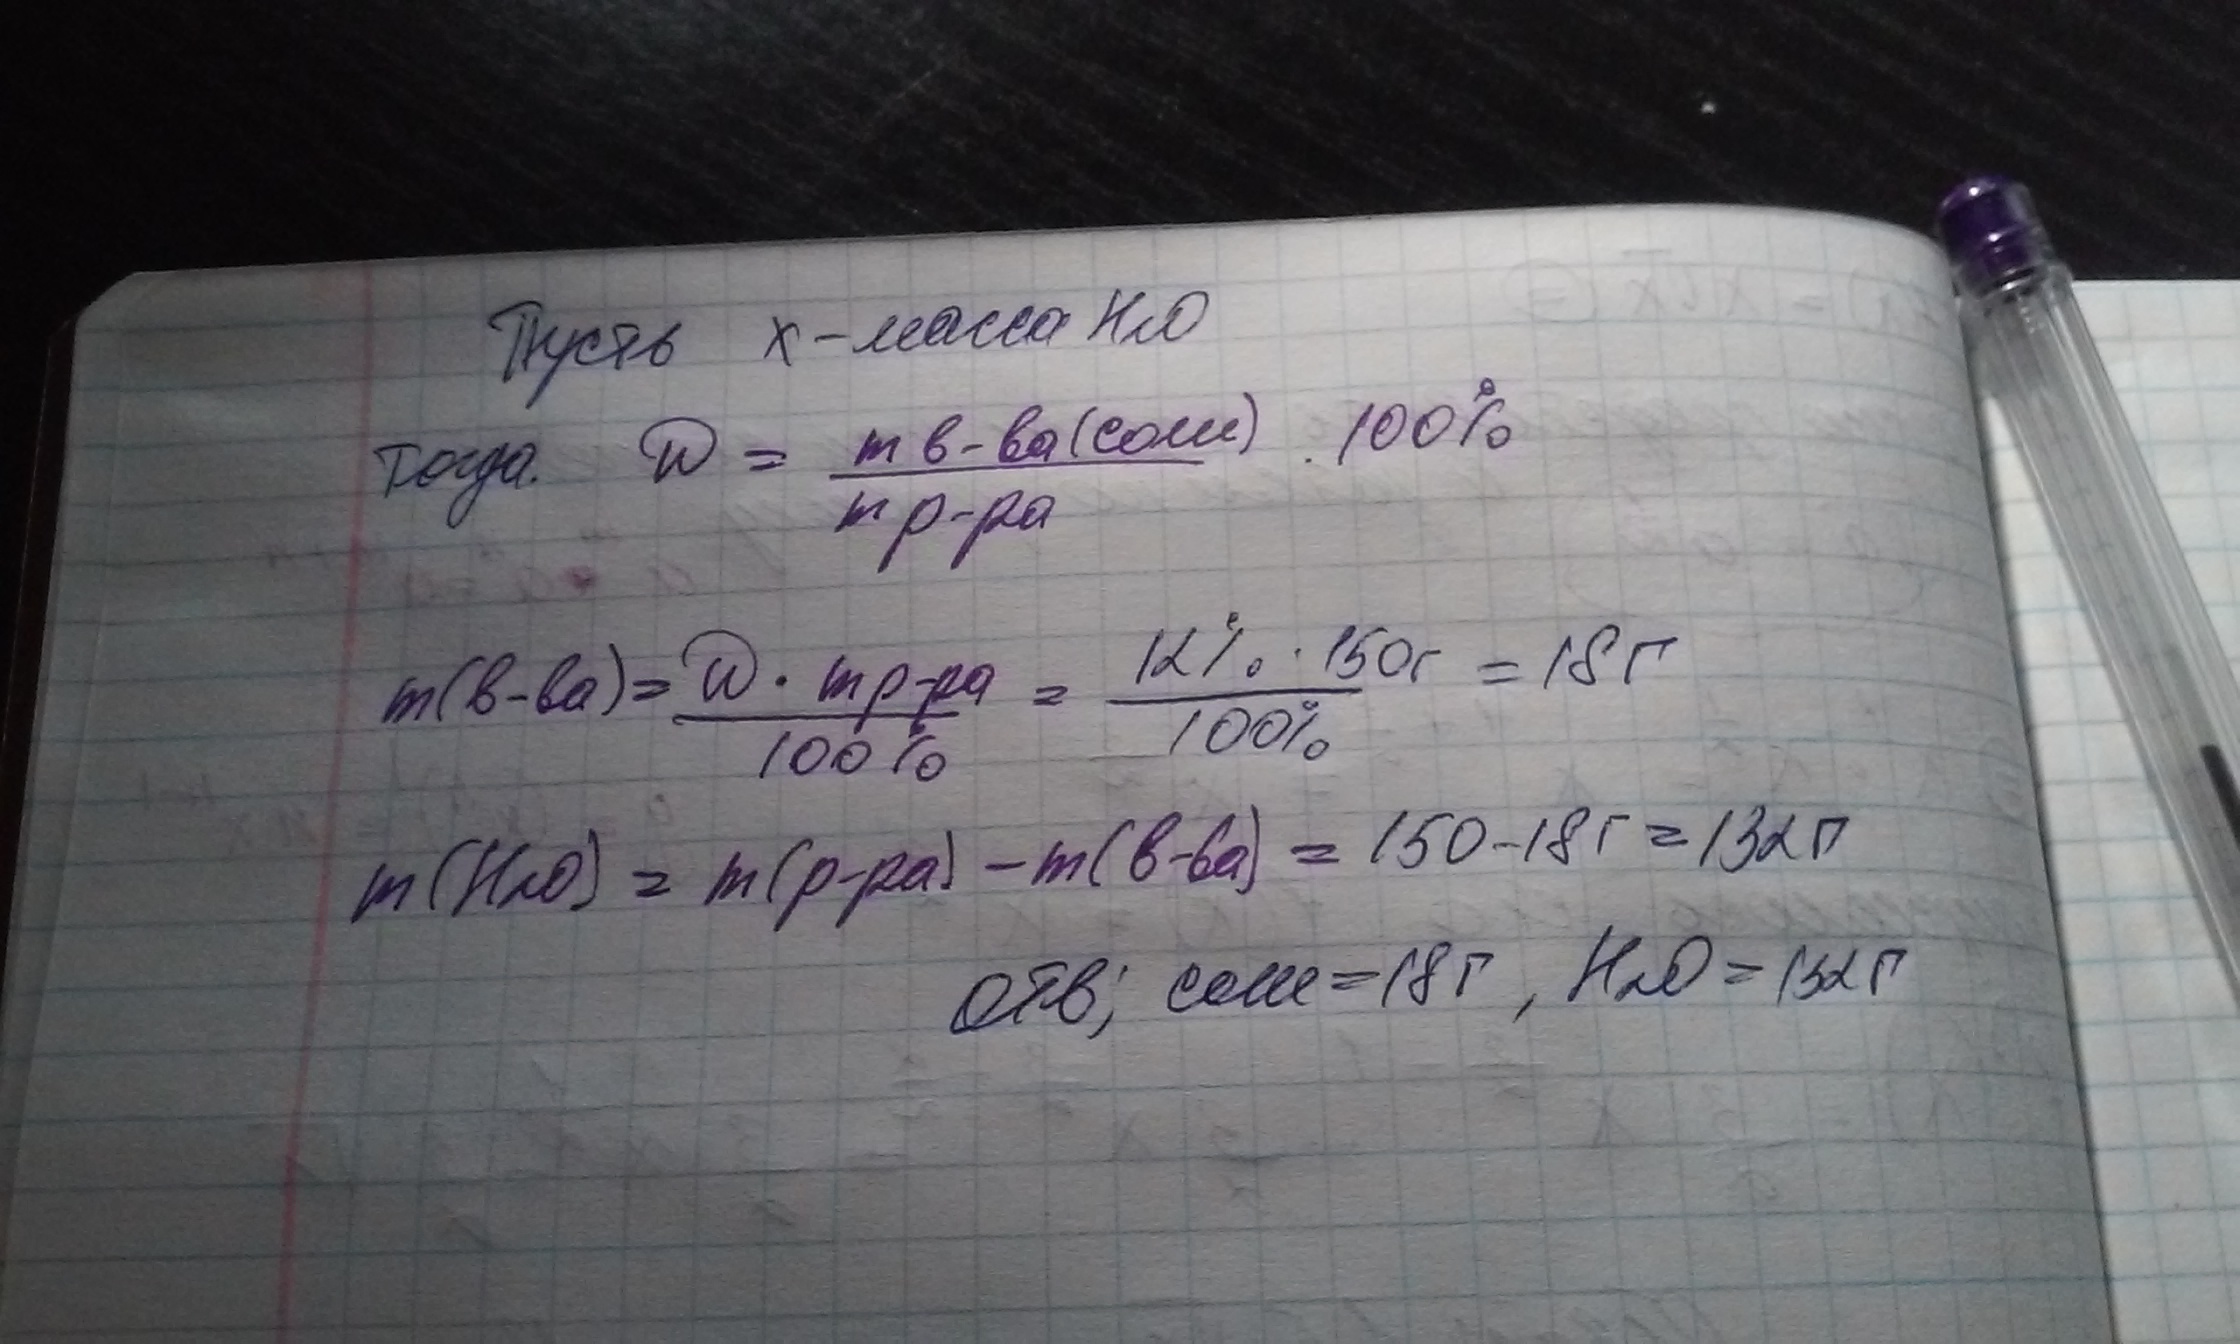 Пусть x - масса H2O
тогда. W = m в-ва (соли) / m р-ра · 100%
m(в-ва) = W · m р-ра / 100% = 12% · 150г / 100% = 18г
m(H2O) = m(р-ра) - m(в-ва) = 150 - 18г = 132г
Отв; соли = 18г, H2O = 132г